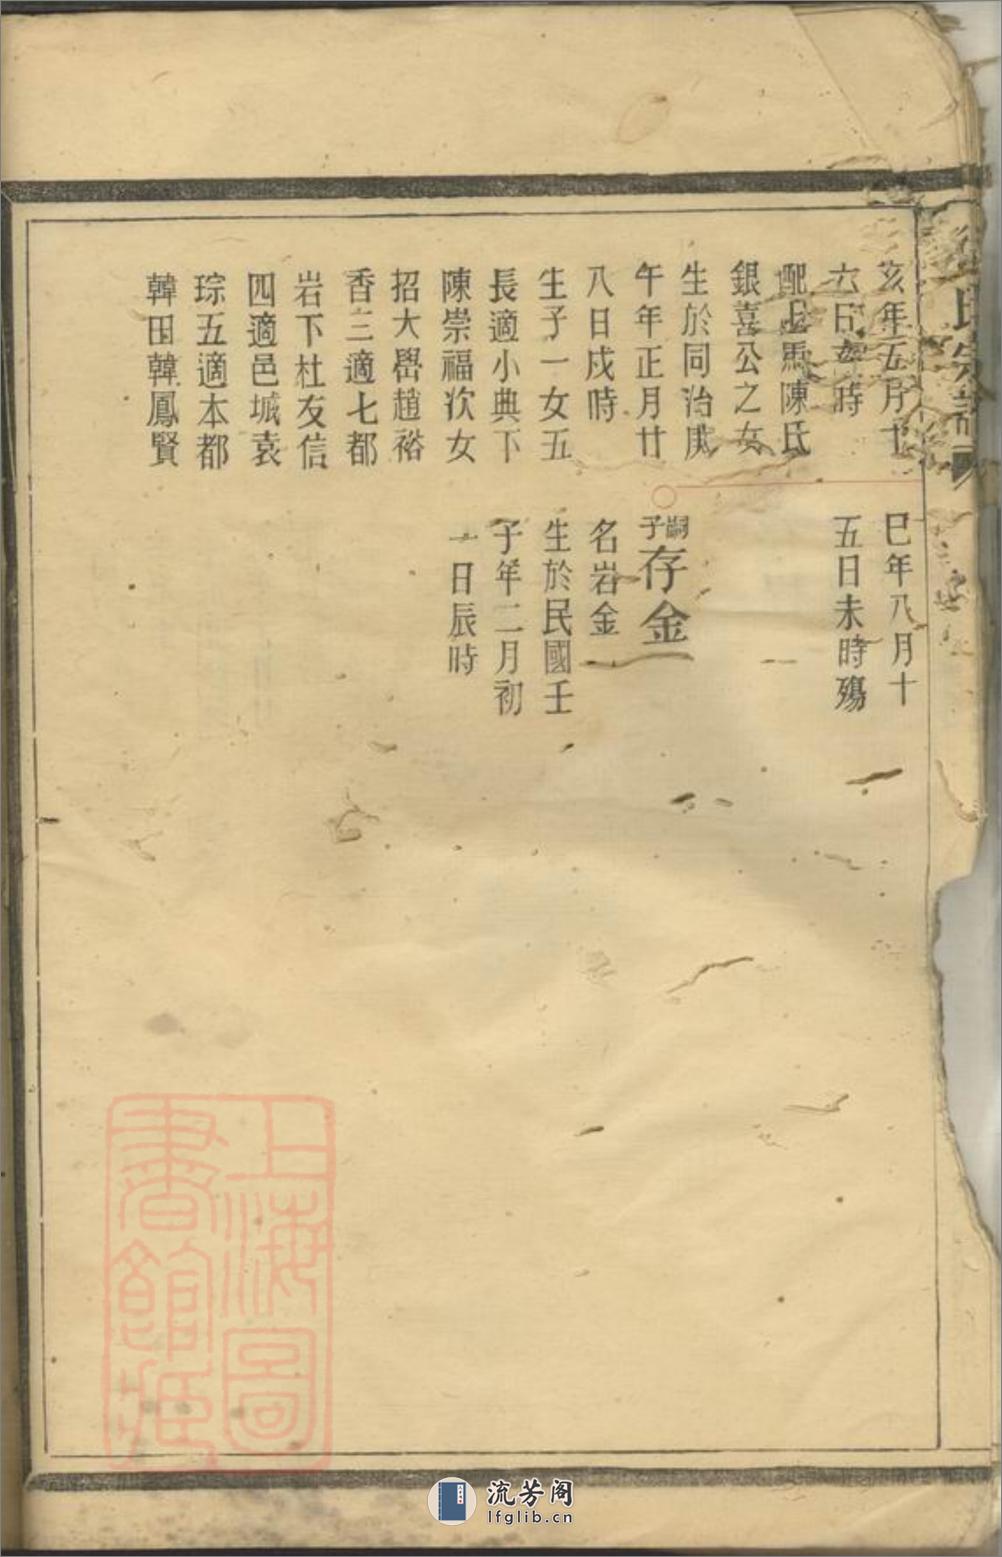 氏宗譜
亥年五月十
六日亥時
配上馬陳氏
銀喜公之女
生於同治庚
午年正月廿
八日戌時
生子一女五
長適小典下
陳崇福次女
招大嶨趙裕
香三適七都
岩下杜友信
四適邑城袁
琮五適本都
韓田韓鳳賢
巳年八月十
五日未時殤
嗣子存金
名岩金
生於民國壬
子年二月初
一日辰時
上海圖
書館藏
流芳阁
lfglib.cn